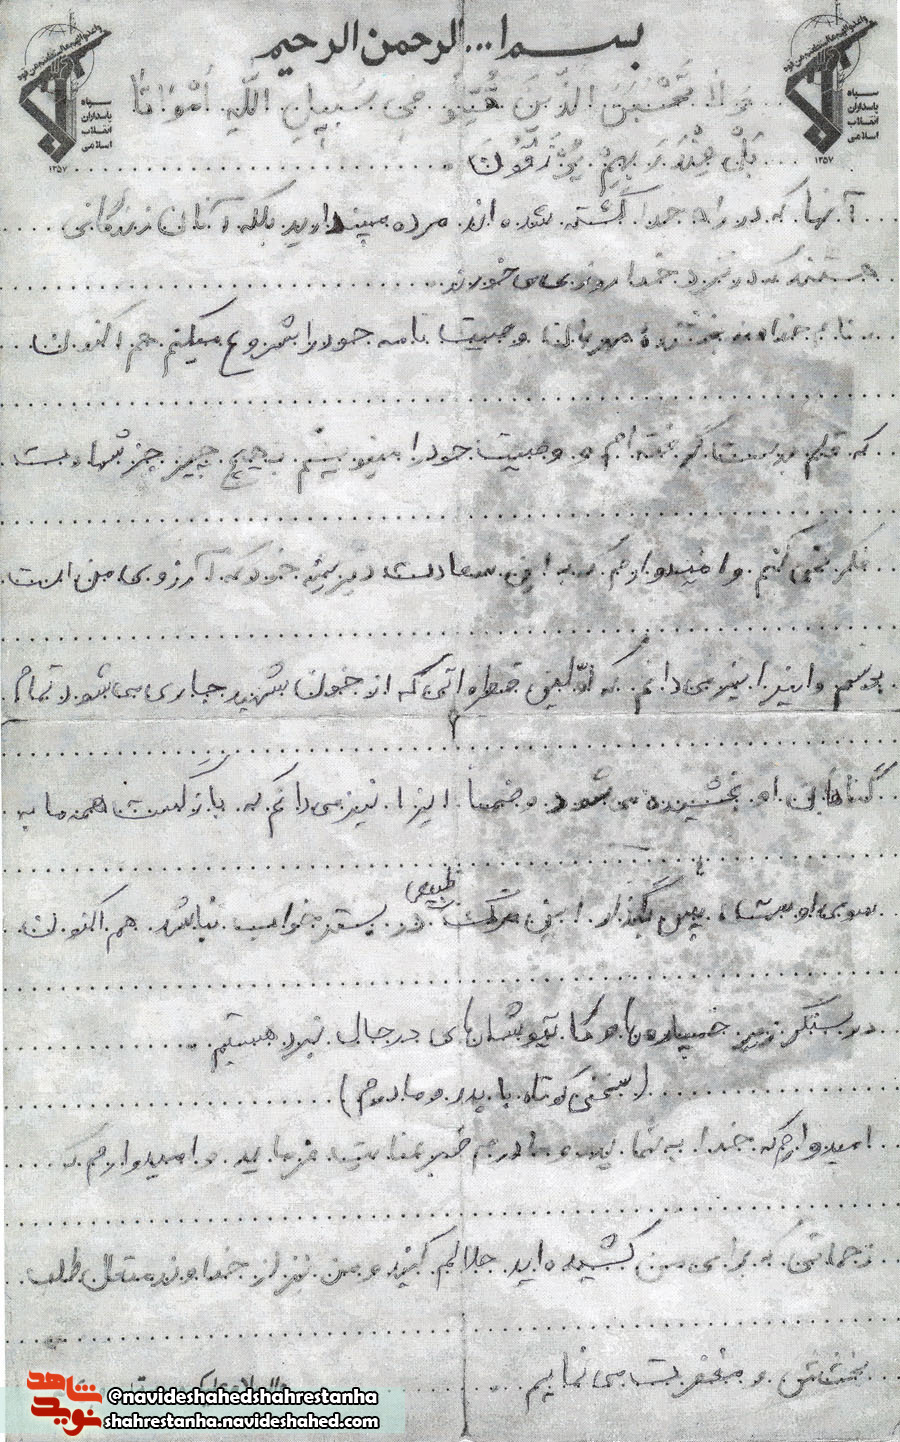 بسم ا... الرحمن الرحیم
سپاه
پاسداران
انقلاب
اسلامی
۱۳۵۷
سپاه
پاسداران
انقلاب
اسلامی
۱۳۵۷
وَلَا تَحْسَبَنَ الذّینَ قُتِلُو فِی سَبیلِ اللّهِ اَمْوَاتاً
بَلْ عِنْدَ رَبِهِمْ یُرْزَقُونَ
آنها که در راه خدا کشته شده اند مرده مپندارید بلکه آنان زندگانی
هستند که در نزد خدا روزی می خورند
بنام خداوند بخشنده مهربان وصیت نامه خود را شروع میکنم هم اکنون
که قلم بدست گرفته ام و وصیت خود را مینویسم به هیچ چیز جز شهادت
فکر نمی کنم و امیدوارم که به این سعادت دیرینه خود که آرزوی من است
برسم و اینرا نیز می دانم که اوّلین قطره اتی که از خون شهید جاری می شود تمام
گناهان او بخشیده می شود و ضمناً اینرا نیز می دانم که بازگشت همه ما به
سوی اوست پس بگذار این مرگ طبیعی در بستر خواب نباشد هم اکنون
در سنگر زیر خمپاره ها و کاتیوشا های در حال نبرد هستیم
(سخنی کوتاه با پدر و مادرم)
امیدوارم که خدا به شما پدر و مادرم صبر عنایت فرماید و امیدوارم که
زحماتی که برای من کشیده اید حلالم کنید و من نیز از خداوند متعال طلب
بخشش و مغفرت می نمایم
شاهد
نوید
@navideshahedshahrestanha
shahrestanha.navideshahed.com